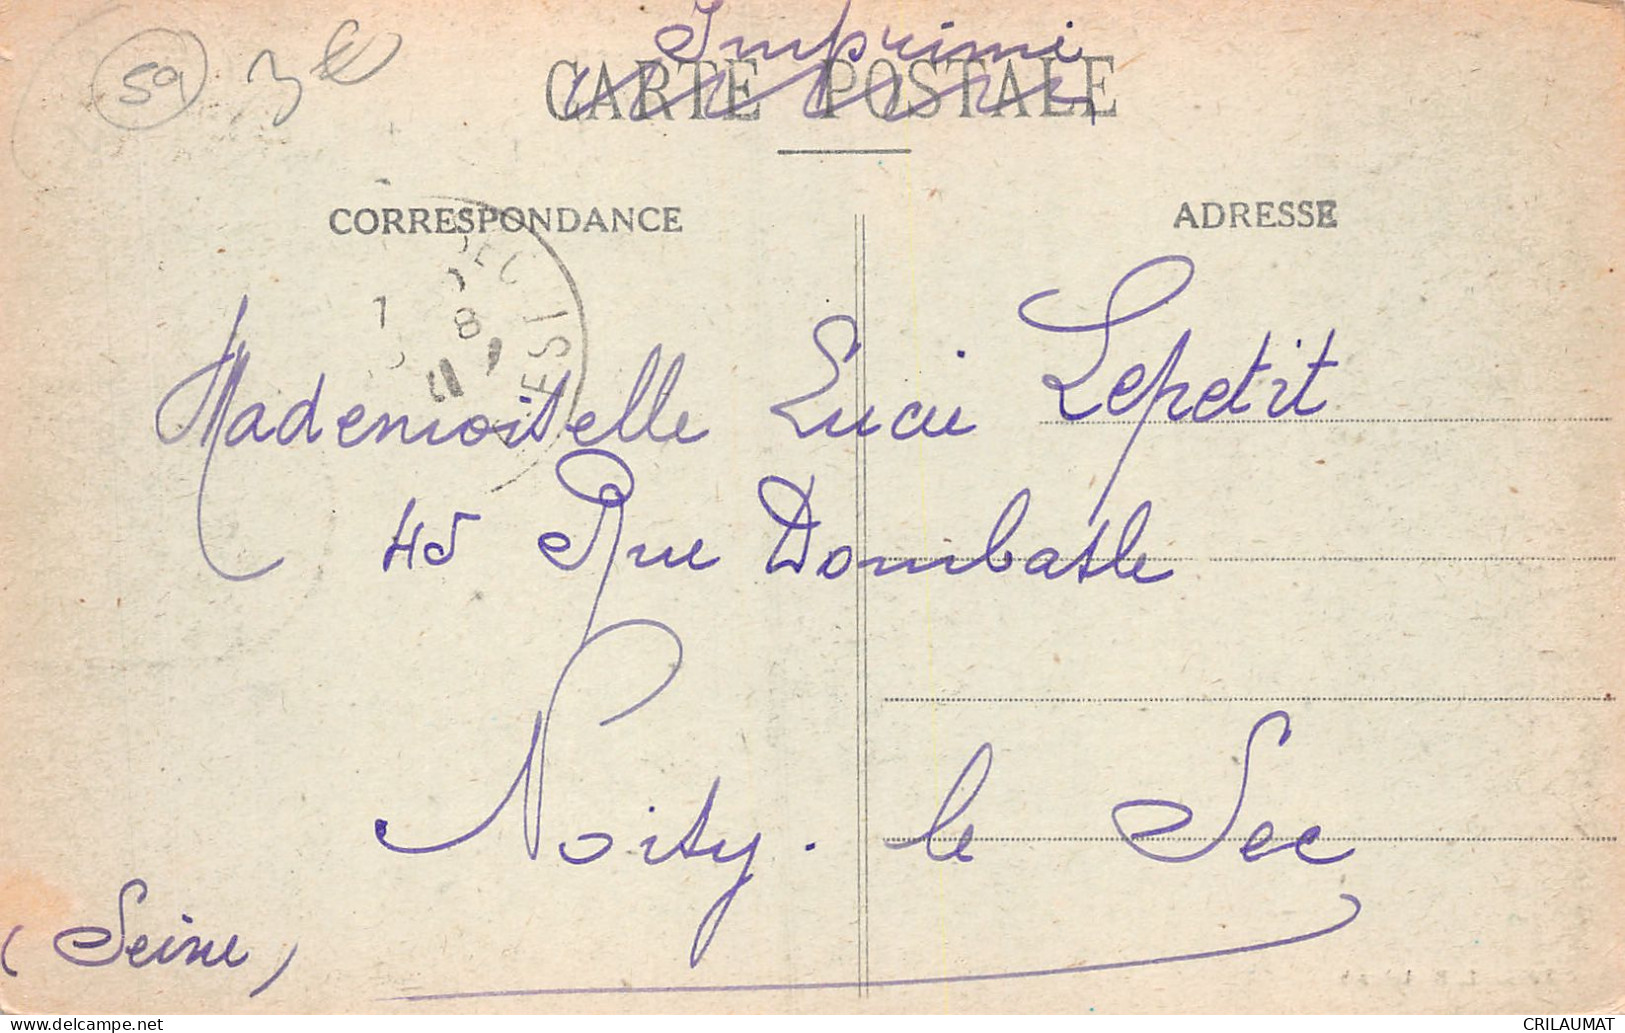 59 3€
Imprimé
CARTE POSTALE
CORRESPONDANCE
ADRESSE
Mademoiselle Lucie Lepetit
45 Rue Dombasle
Noisy. le Sec
(Seine)
CRILAUMAT